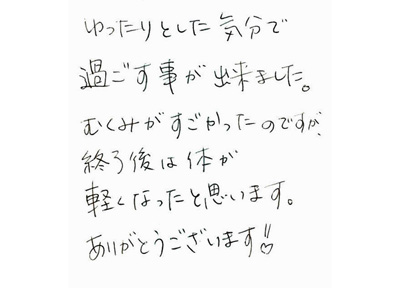 ゆったりとした気分で
過ごす事が出来ました。
むくみがすごかったのですが、
終了後は体が
軽くなったと思います。
ありがとうございます!!♡